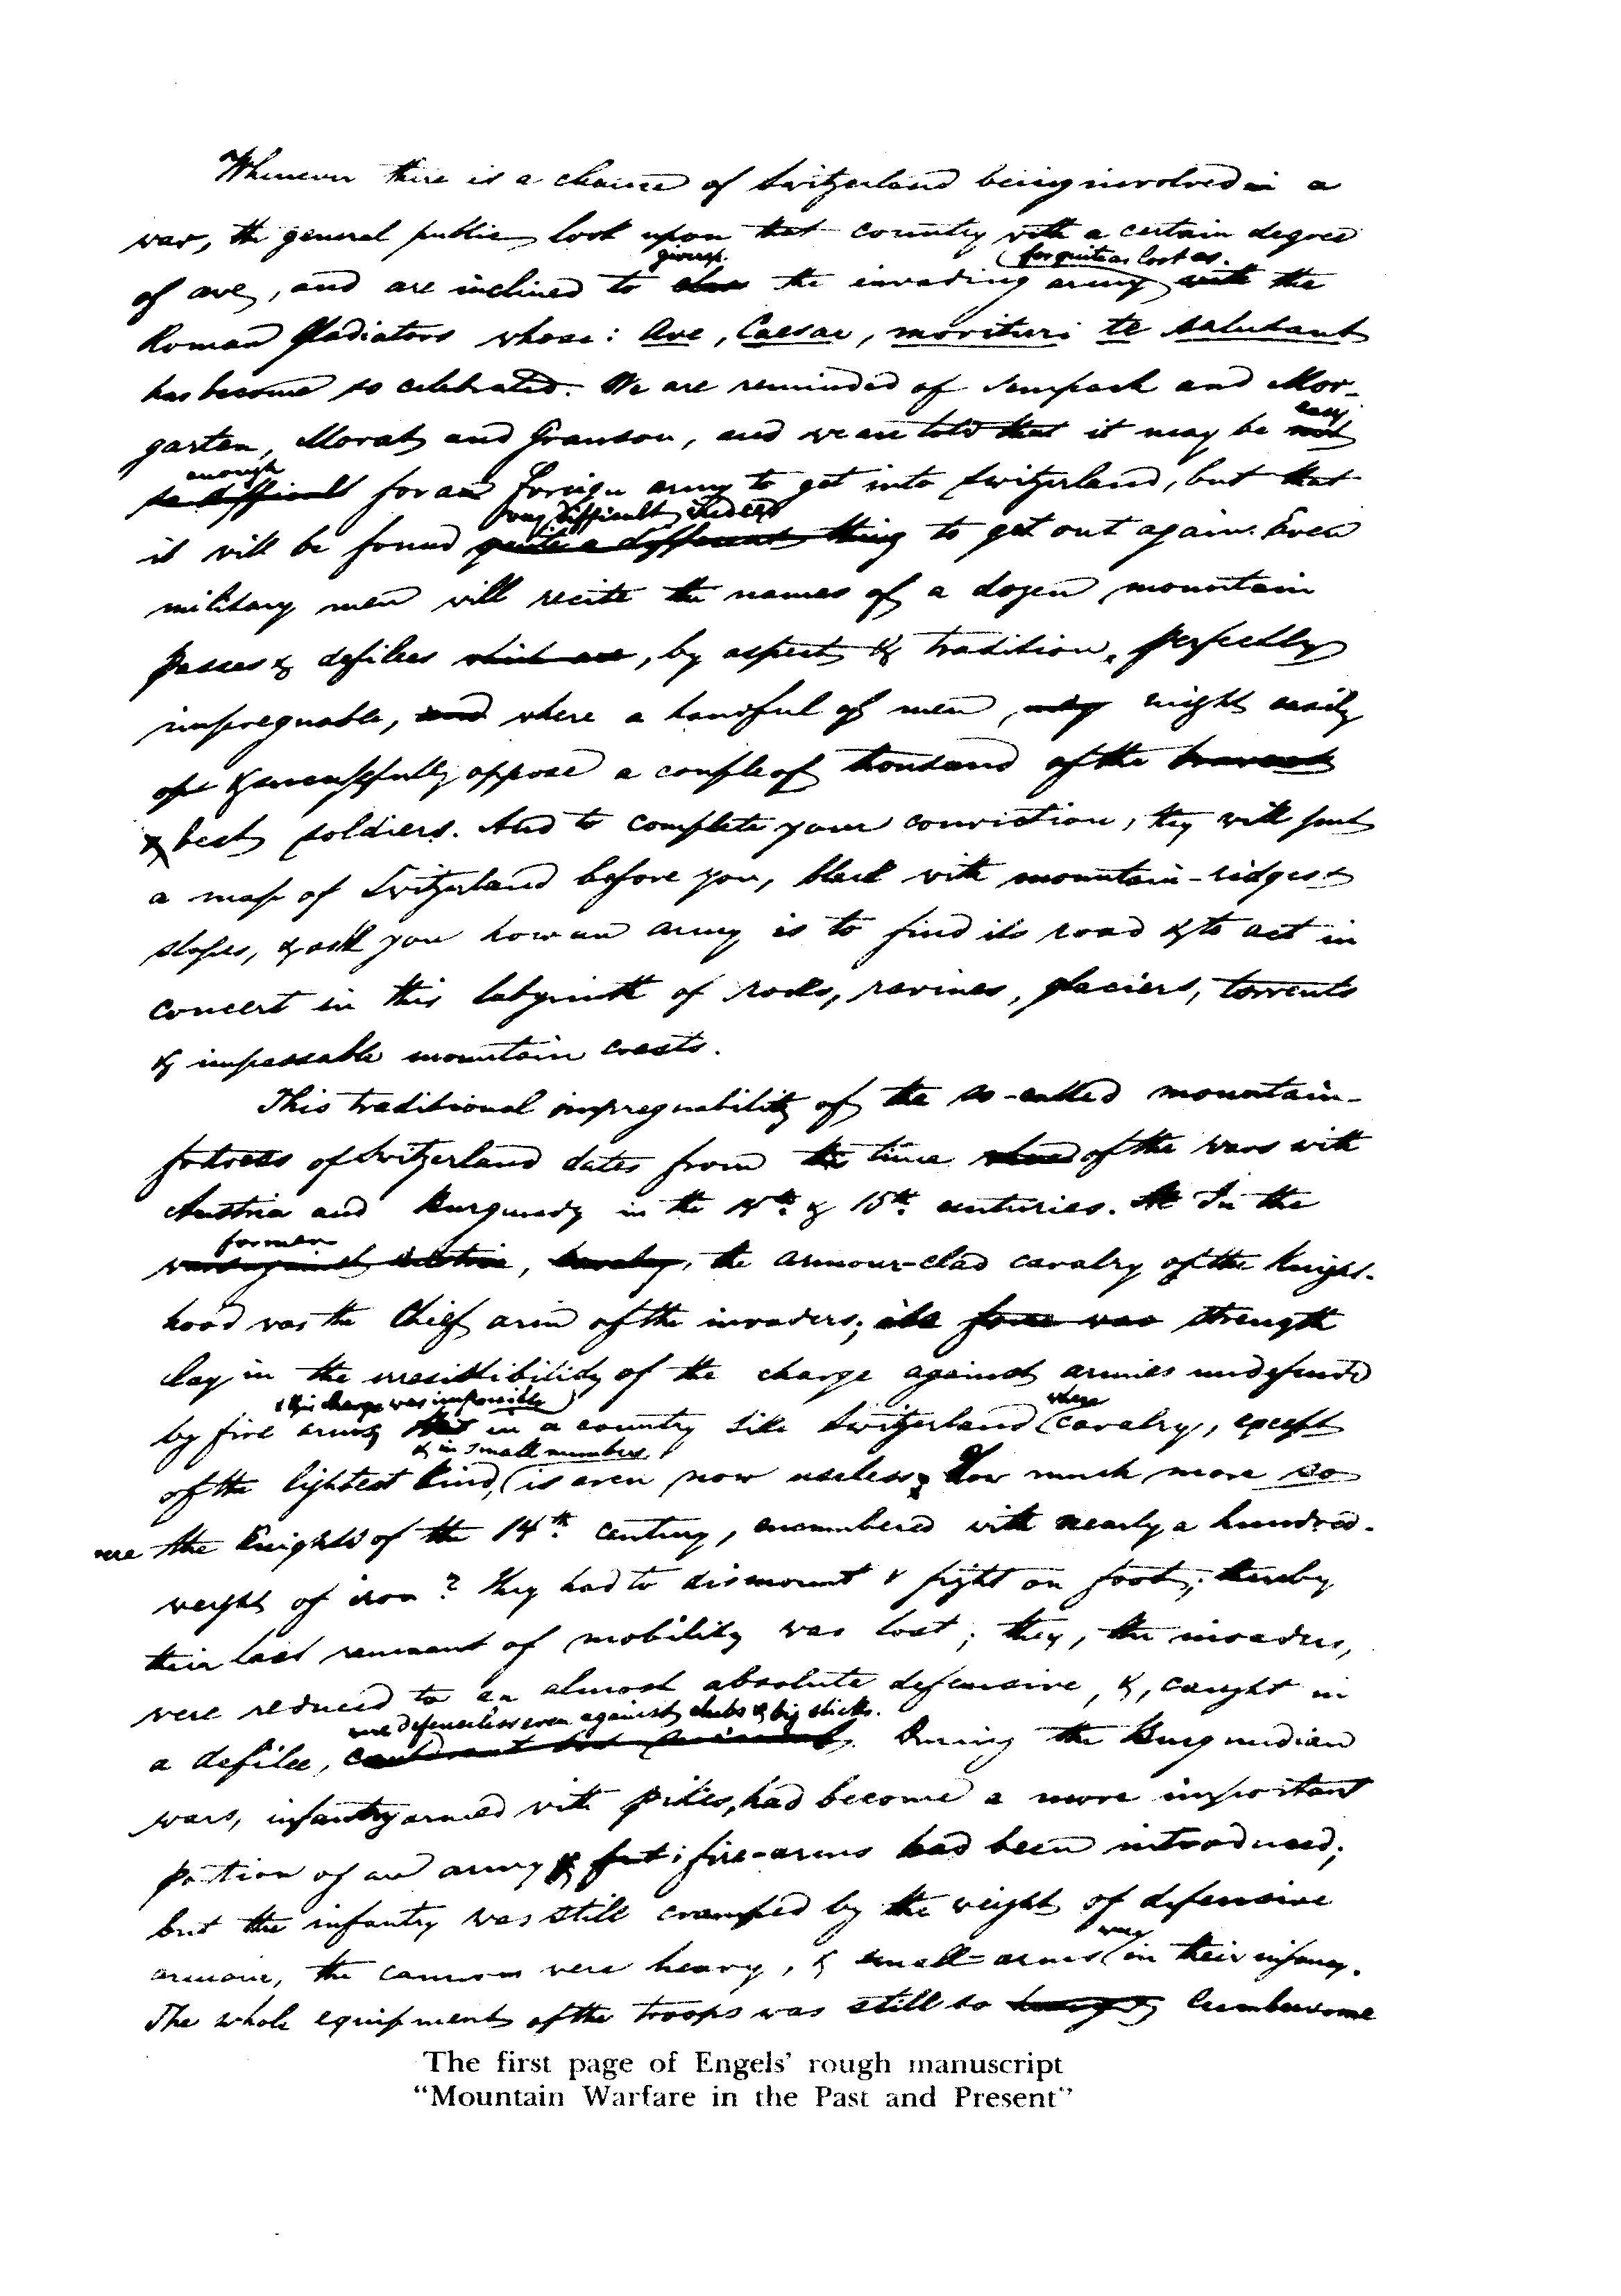 Whenever there is a chance of Switzerland being involved in a
war, the general public look upon that country with a certain degree
give up. for quite as lost as.
of awe, and are inclined to the invading army with the
Roman Gladiators whose: Ave, Caesar, morituri te salutant
has become so celebrated. We are reminded of Sempach and Mor-
easy
garten, Morat and Granson, and we are told that it may be not
enough
so difficult for a foreign army to get into Switzerland, but that
very difficult indeed
it will be found quite a different thing to get out again. Even
military men will recite the names of a dozen mountain
passes & defilees which are, by aspect & tradition, perfectly
impregnable, and where a handful of men, may might easily
& successfully oppose a couple of thousand of the bravest
& best soldiers. And to complete your conviction, they will put
a map of Switzerland before you, black with mountain-ridges &
slopes, & ask you how an army is to find its road & to act in
concert in this labyrinth of rocks, ravines, glaciers, torrents
& impassable mountain crests.
This traditional impregnability of the so-called mountain-
fortress of Switzerland dates from the time of the wars with
Austria and Burgundy in the 14th. & 15th. centuries. In the
former
wars against Austria, cavalry, the armour-clad cavalry of the Knight-
hood was the Chief arm of the invaders; its force was strength
lay in the irresistibility of the charge against armies undefended
this charge was impossible where
by fire arms in a country like Switzerland cavalry, except
& in small numbers
of the lightest kind, is even now useless; How much more so
were the Knights of the 14th. century, encumbered with nearly a hundred-
weight of iron? They had to dismount & fight on foot; thereby
their last remnant of mobility was lost; they, the invaders,
were reduced to an almost absolute defensive, &, caught in
were defenceless even against clubs & big sticks.
a defilee, During the Burgundian
wars, infantry armed with pikes, had become a more important
portion of an army & fire-arms had been introduced;
but the infantry was still cramped by the weight of defensive
were
armour, the cannons were heavy, & small-arms in their infancy.
The whole equipment of the troops was still so cumbersome
The first page of Engels' rough manuscript
"Mountain Warfare in the Past and Present"